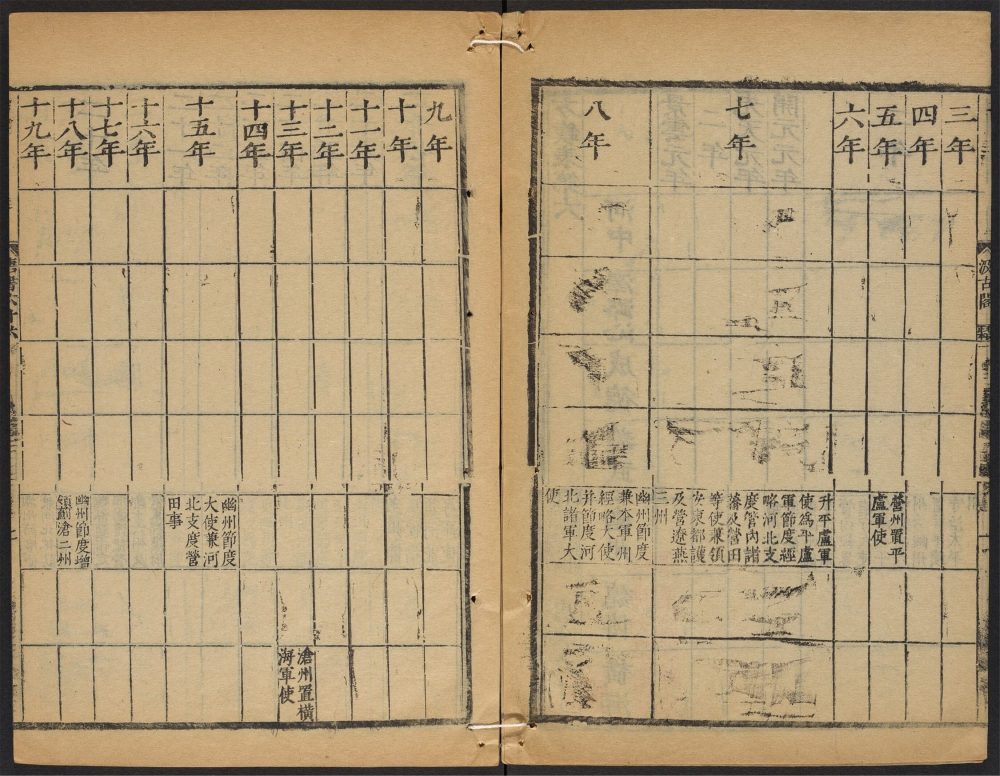 三年
四年
五年
六年
七年
八年
營州置平
盧軍使
升平盧軍
使爲平盧
軍節度經
略河北支
度管內諸
蕃及營田
等使兼領
安東都護
及營遼燕
三州
幽州節度
兼本軍州
經略大使
并節度河
北諸軍大
使
汲古閣
九年
十年
十一年
十二年
十三年
十四年
十五年
十六年
十七年
十八年
十九年
幽州節度
大使兼河
北支度營
田事
幽州節度增
領薊滄二州
滄州置橫
海軍使
唐書六十六